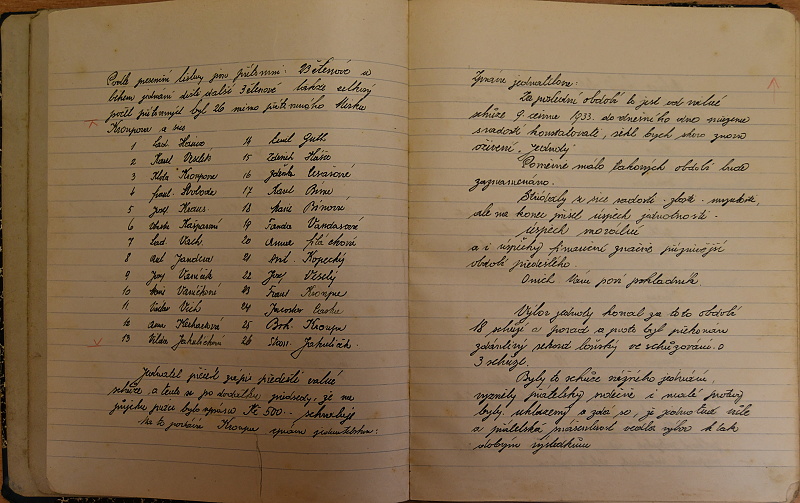 Podle presenční listiny jsou přítomni: 23 členové a
během jednání došli další 3 členové takže celkový
počet přítomných byl 26 mimo přítomného
Kroupara a sice
1 Lad. Hašco 14 Emil Guth
2 Karel Veselík 15 Zdeněk Haško
3 Kroupova 16 Zdeňka Císařová
4 Svoboda 17 Karel Brne
5 Josef Kraus 18 Marie
6 Kašparová 19 Fanda Vandasová
7 Lad. Vach. 20 Anna
8 Jandera 21 Ant. Kopecký
9 Josef Vaníček 22 Josef Veselý
10 Vaníčková 23 Frant. Kroupa
11 Václav Vích 24 Jaroslav
12 Anna 25 Boh. Kroupa
13 Vilda Jakubíčková 26 Jakubíček.
Jednatel přečetl zápis předešlé valné
schůze, a tento se po dodatku předsedy, že na
bylo Kč 500.- schvaluje
Na to podává Kroupa zprávu jednatelskou:
Zpráva jednatelova:
Za poslední období to jest od valné
schůze 9 června 1933. do dnešního dne můžeme
s radostí konstatovati, řekl bych skoro znovu
oživení jednoty.
Poměrně málo takových období bude
zaznamenáno.
Střídaly se sice radosti - zlosti -
ale na konec přišel úspěch jednotnosti -
úspěch morální
a i úspěchy finanční značně příznivější
období předešlého
O nich Vám poví pokladník
Výbor jednoty konal za toto období
18 schůzí a porad a proto byl překonán
zdánlivý rekord loňský ve schůzování o
3 schůze.
Byly to schůze vážného jednání,
vyzněly přátelsky společně i malé
byly uhlazeny a zdá se, že jednotná vůle
a přátelská vedla výbor k tak
dobrým výsledkům